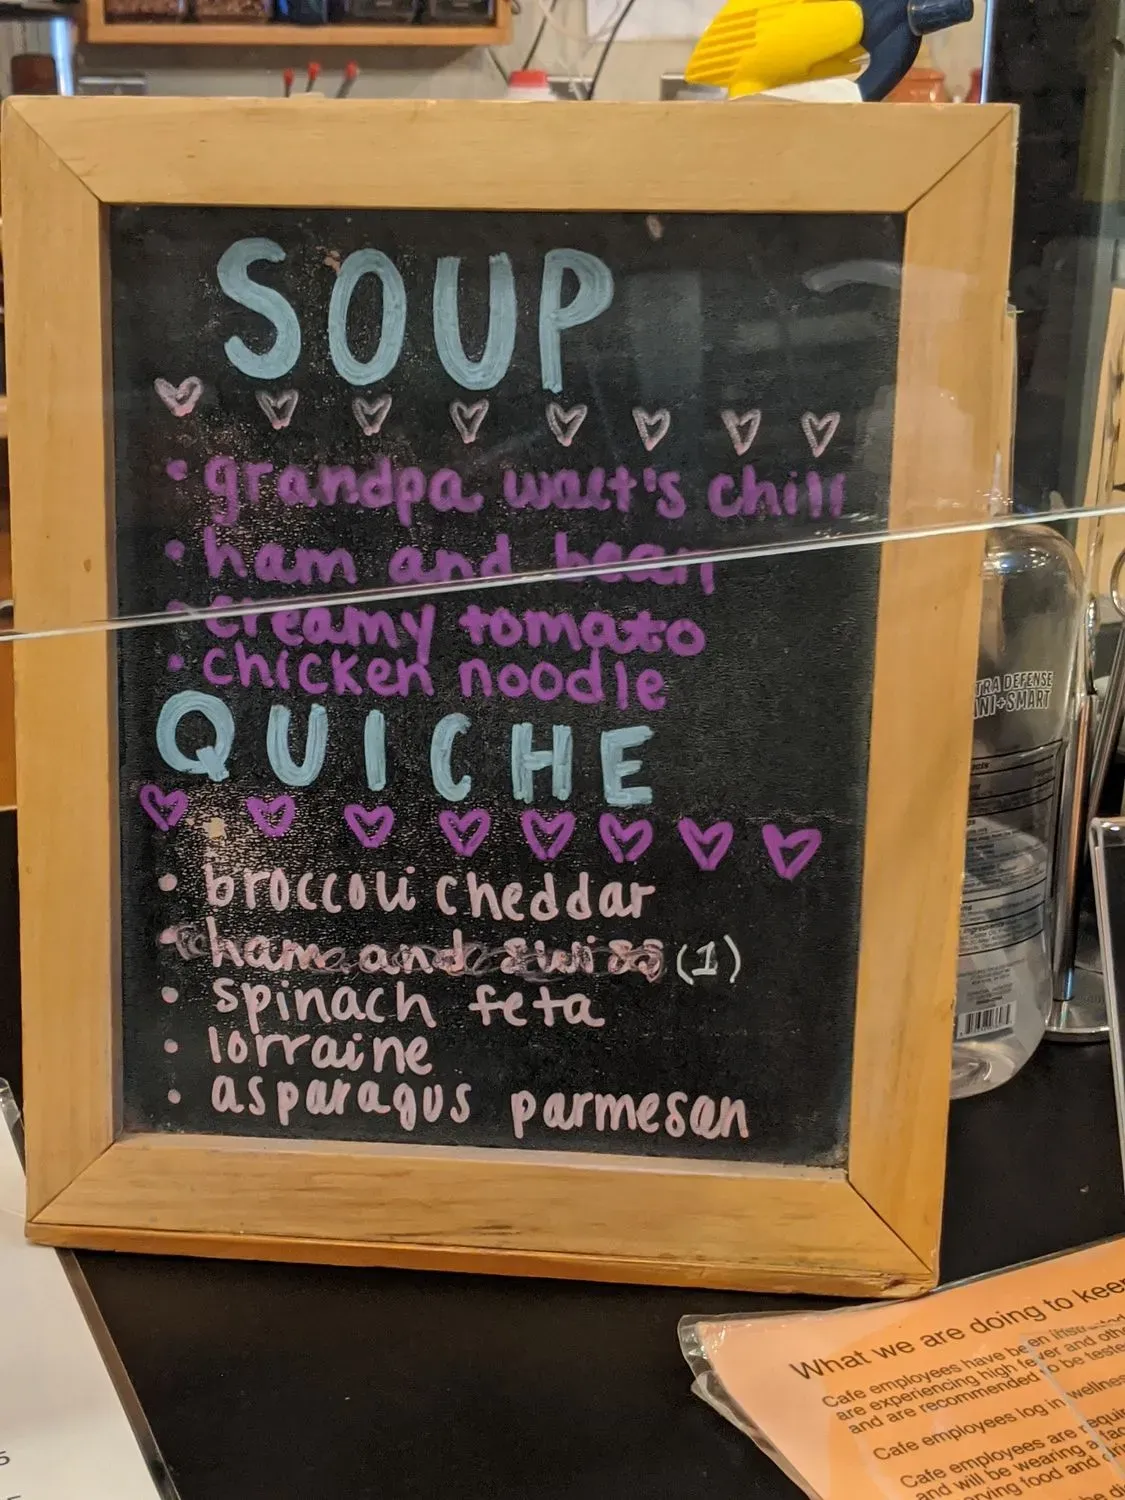 SOUP
• grandpa walt's chili
• ham and bean
• creamy tomato
• chicken noodle
QUICHE
• broccoli cheddar
• ham and swiss (1)
• spinach feta
• lorraine
• asparagus parmesan
TRA DEFENSE
ANI+SMART
What we are doing to keep
Cafe employees have been
are experiencing high fever and oth
and are recommended to be teste
Cafe employees log in wellness
Cafe employees are requir
and will be wearing a fac
erving food and